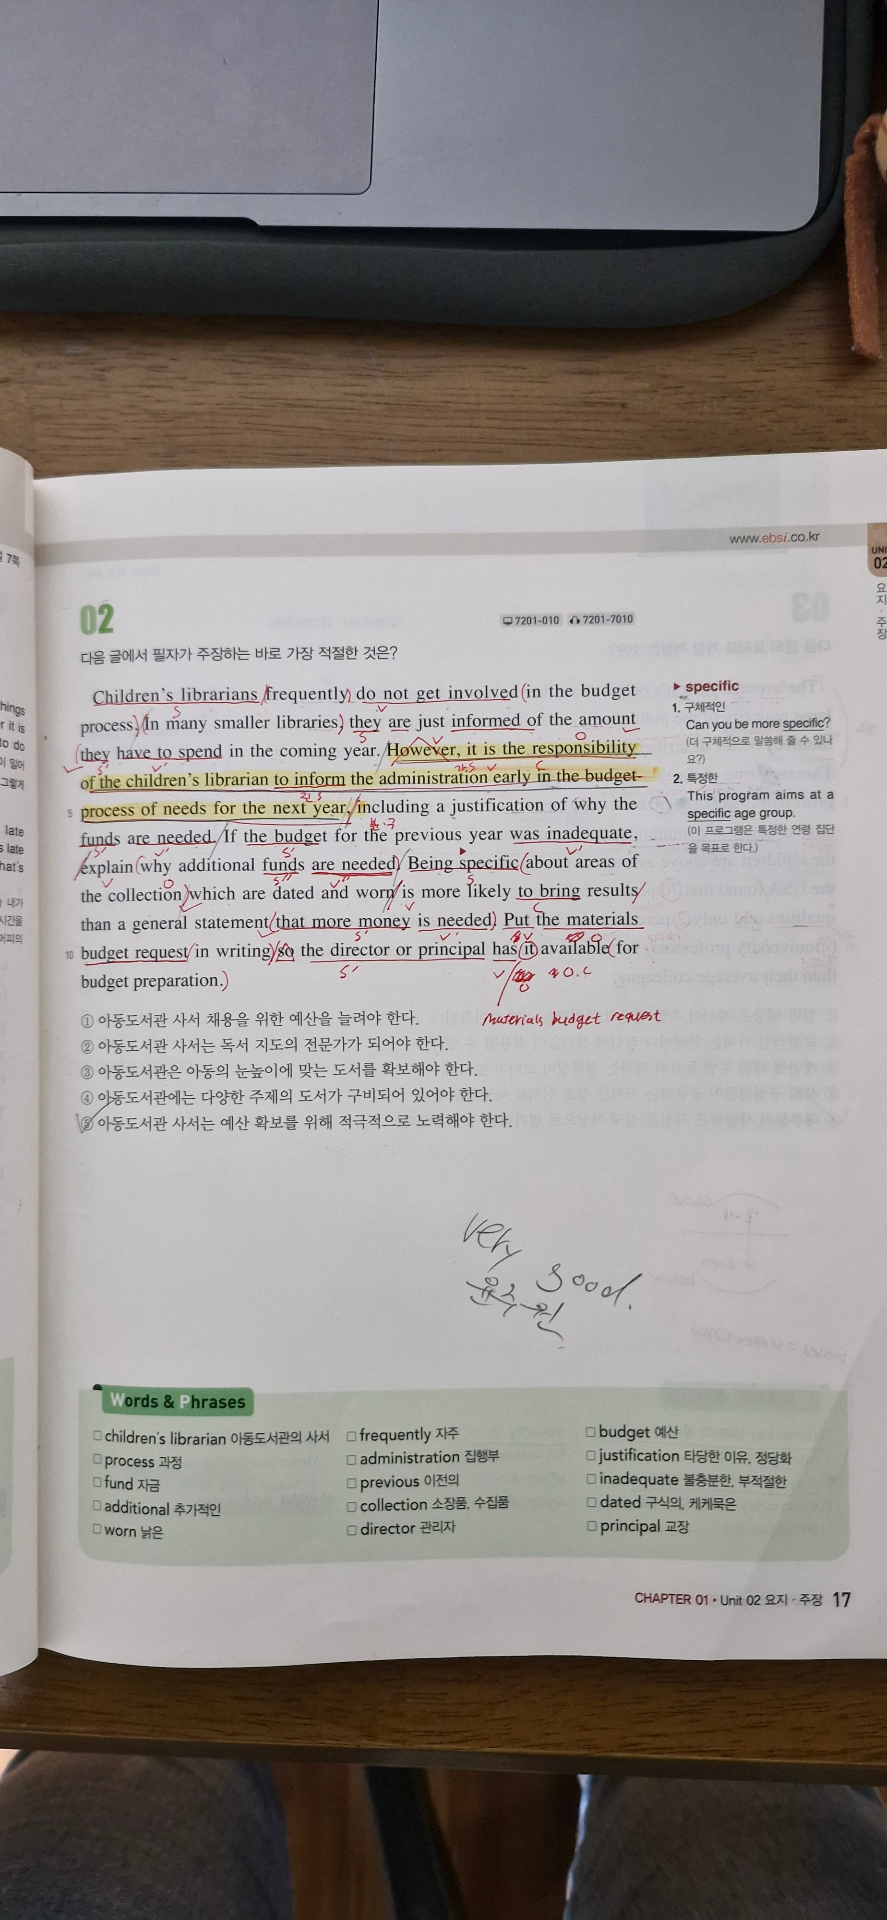 www.ebsi.co.kr
02
7201-010 7201-7010
다음 글에서 필자가 주장하는 바로 가장 적절한 것은?
Children's librarians frequently do not get involved in the budget
process. In many smaller libraries they are just informed of the amount
they have to spend in the coming year. However, it is the responsibility
of the children's librarian to inform the administration early in the budget-
5 process of needs for the next year, including a justification of why the
funds are needed. If the budget for the previous year was inadequate,
explain why additional funds are needed. Being specific about areas of
the collection which are dated and worn is more likely to bring results
than a general statement that more money is needed. Put the materials
10 budget request in writing so the director or principal has it available for
budget preparation.
materials budget request
▶ specific
1. 구체적인
Can you be more specific?
(더 구체적으로 말씀해 줄 수 있나
요?)
2. 특정한
This program aims at a
specific age group.
(이 프로그램은 특정한 연령 집단
을 목표로 한다.)
① 아동도서관 사서 채용을 위한 예산을 늘려야 한다.
② 아동도서관 사서는 독서 지도의 전문가가 되어야 한다.
③ 아동도서관은 아동의 눈높이에 맞는 도서를 확보해야 한다.
④ 아동도서관에는 다양한 주제의 도서가 구비되어 있어야 한다.
⑤ 아동도서관 사서는 예산 확보를 위해 적극적으로 노력해야 한다.
very good.
윤주원
Words & Phrases
□ children's librarian 아동도서관의 사서 □ frequently 자주 □ budget 예산
□ process 과정 □ administration 집행부 □ justification 타당한 이유, 정당화
□ fund 자금 □ previous 이전의 □ inadequate 불충분한, 부적절한
□ additional 추가적인 □ collection 소장품, 수집품 □ dated 구식의, 케케묵은
□ worn 낡은 □ director 관리자 □ principal 교장
CHAPTER 01 • Unit 02 요지 · 주장 17
UNI
02
요지·주장